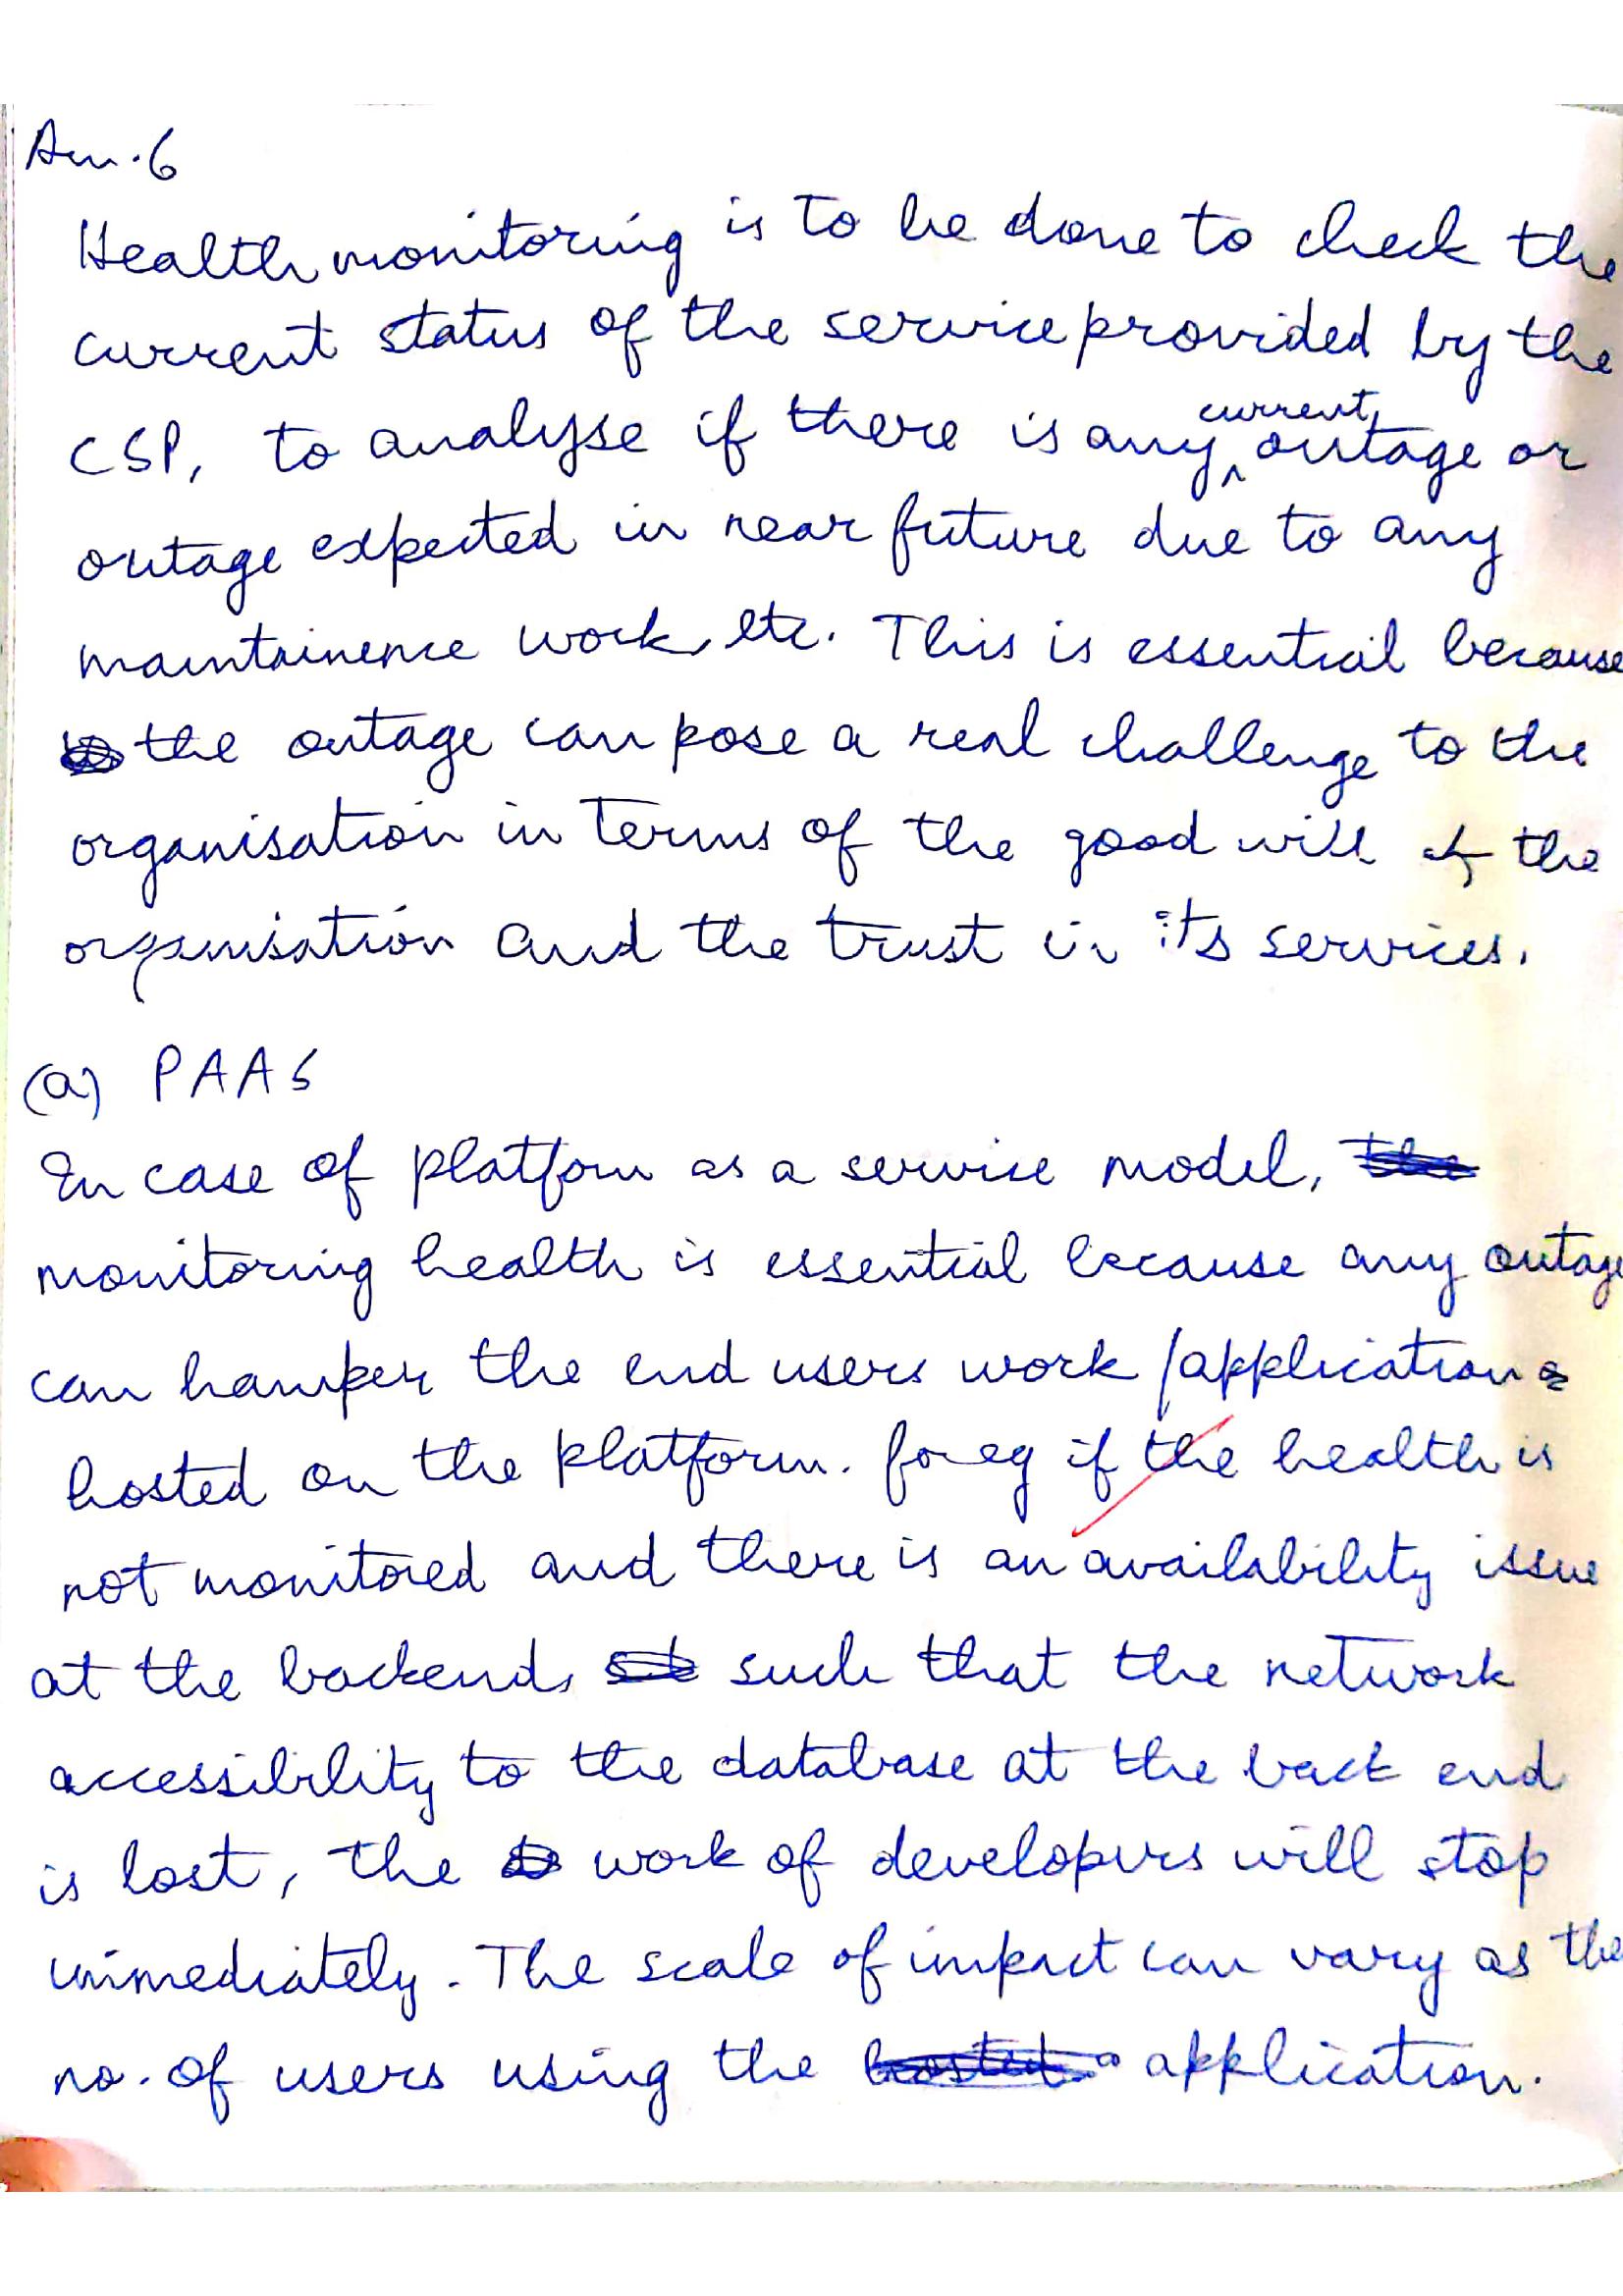 Ans.6
Health monitoring is to be done to check the
current status of the service provided by the
CSP, to analyse if there is any current outage or
outage expected in near future due to any
maintainence work, etc. This is essential because
the outage can pose a real challenge to the
organisation in terms of the good will of the
organisation and the trust in its services.
(a) PAAS
In case of platfom as a service model,
monitoring health is essential because any outage
can hamper the end users work /applications
hosted on the platform. for eg if the health is
not monitored and there is an availability issue
at the backend, such that the network
accessibility to the database at the back end
is lost, the work of developers will stop
immediately. The scale of impact can vary as the
no. of users using the application.